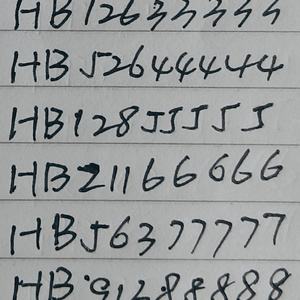 HB12633333
HB52644444
HB12855555
HB21166666
HB56377777
HB91288888